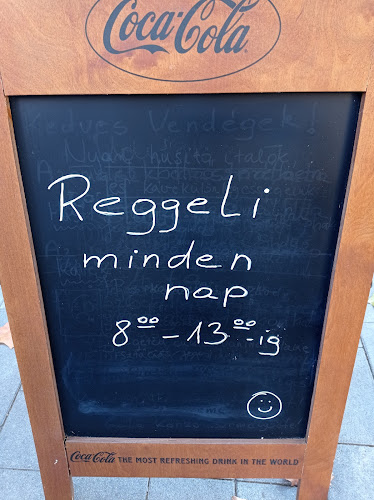 Coca-Cola
Kedves Vendégek!
Reggeli
minden
nap
8⁰⁰-13⁰⁰-ig
Coca-Cola THE MOST REFRESHING DRINK IN THE WORLD